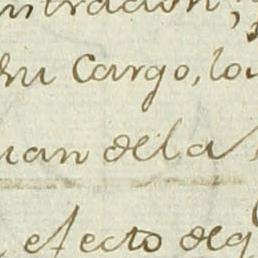 ntracion,
su Cargo, lo
uan dela
efecto deq